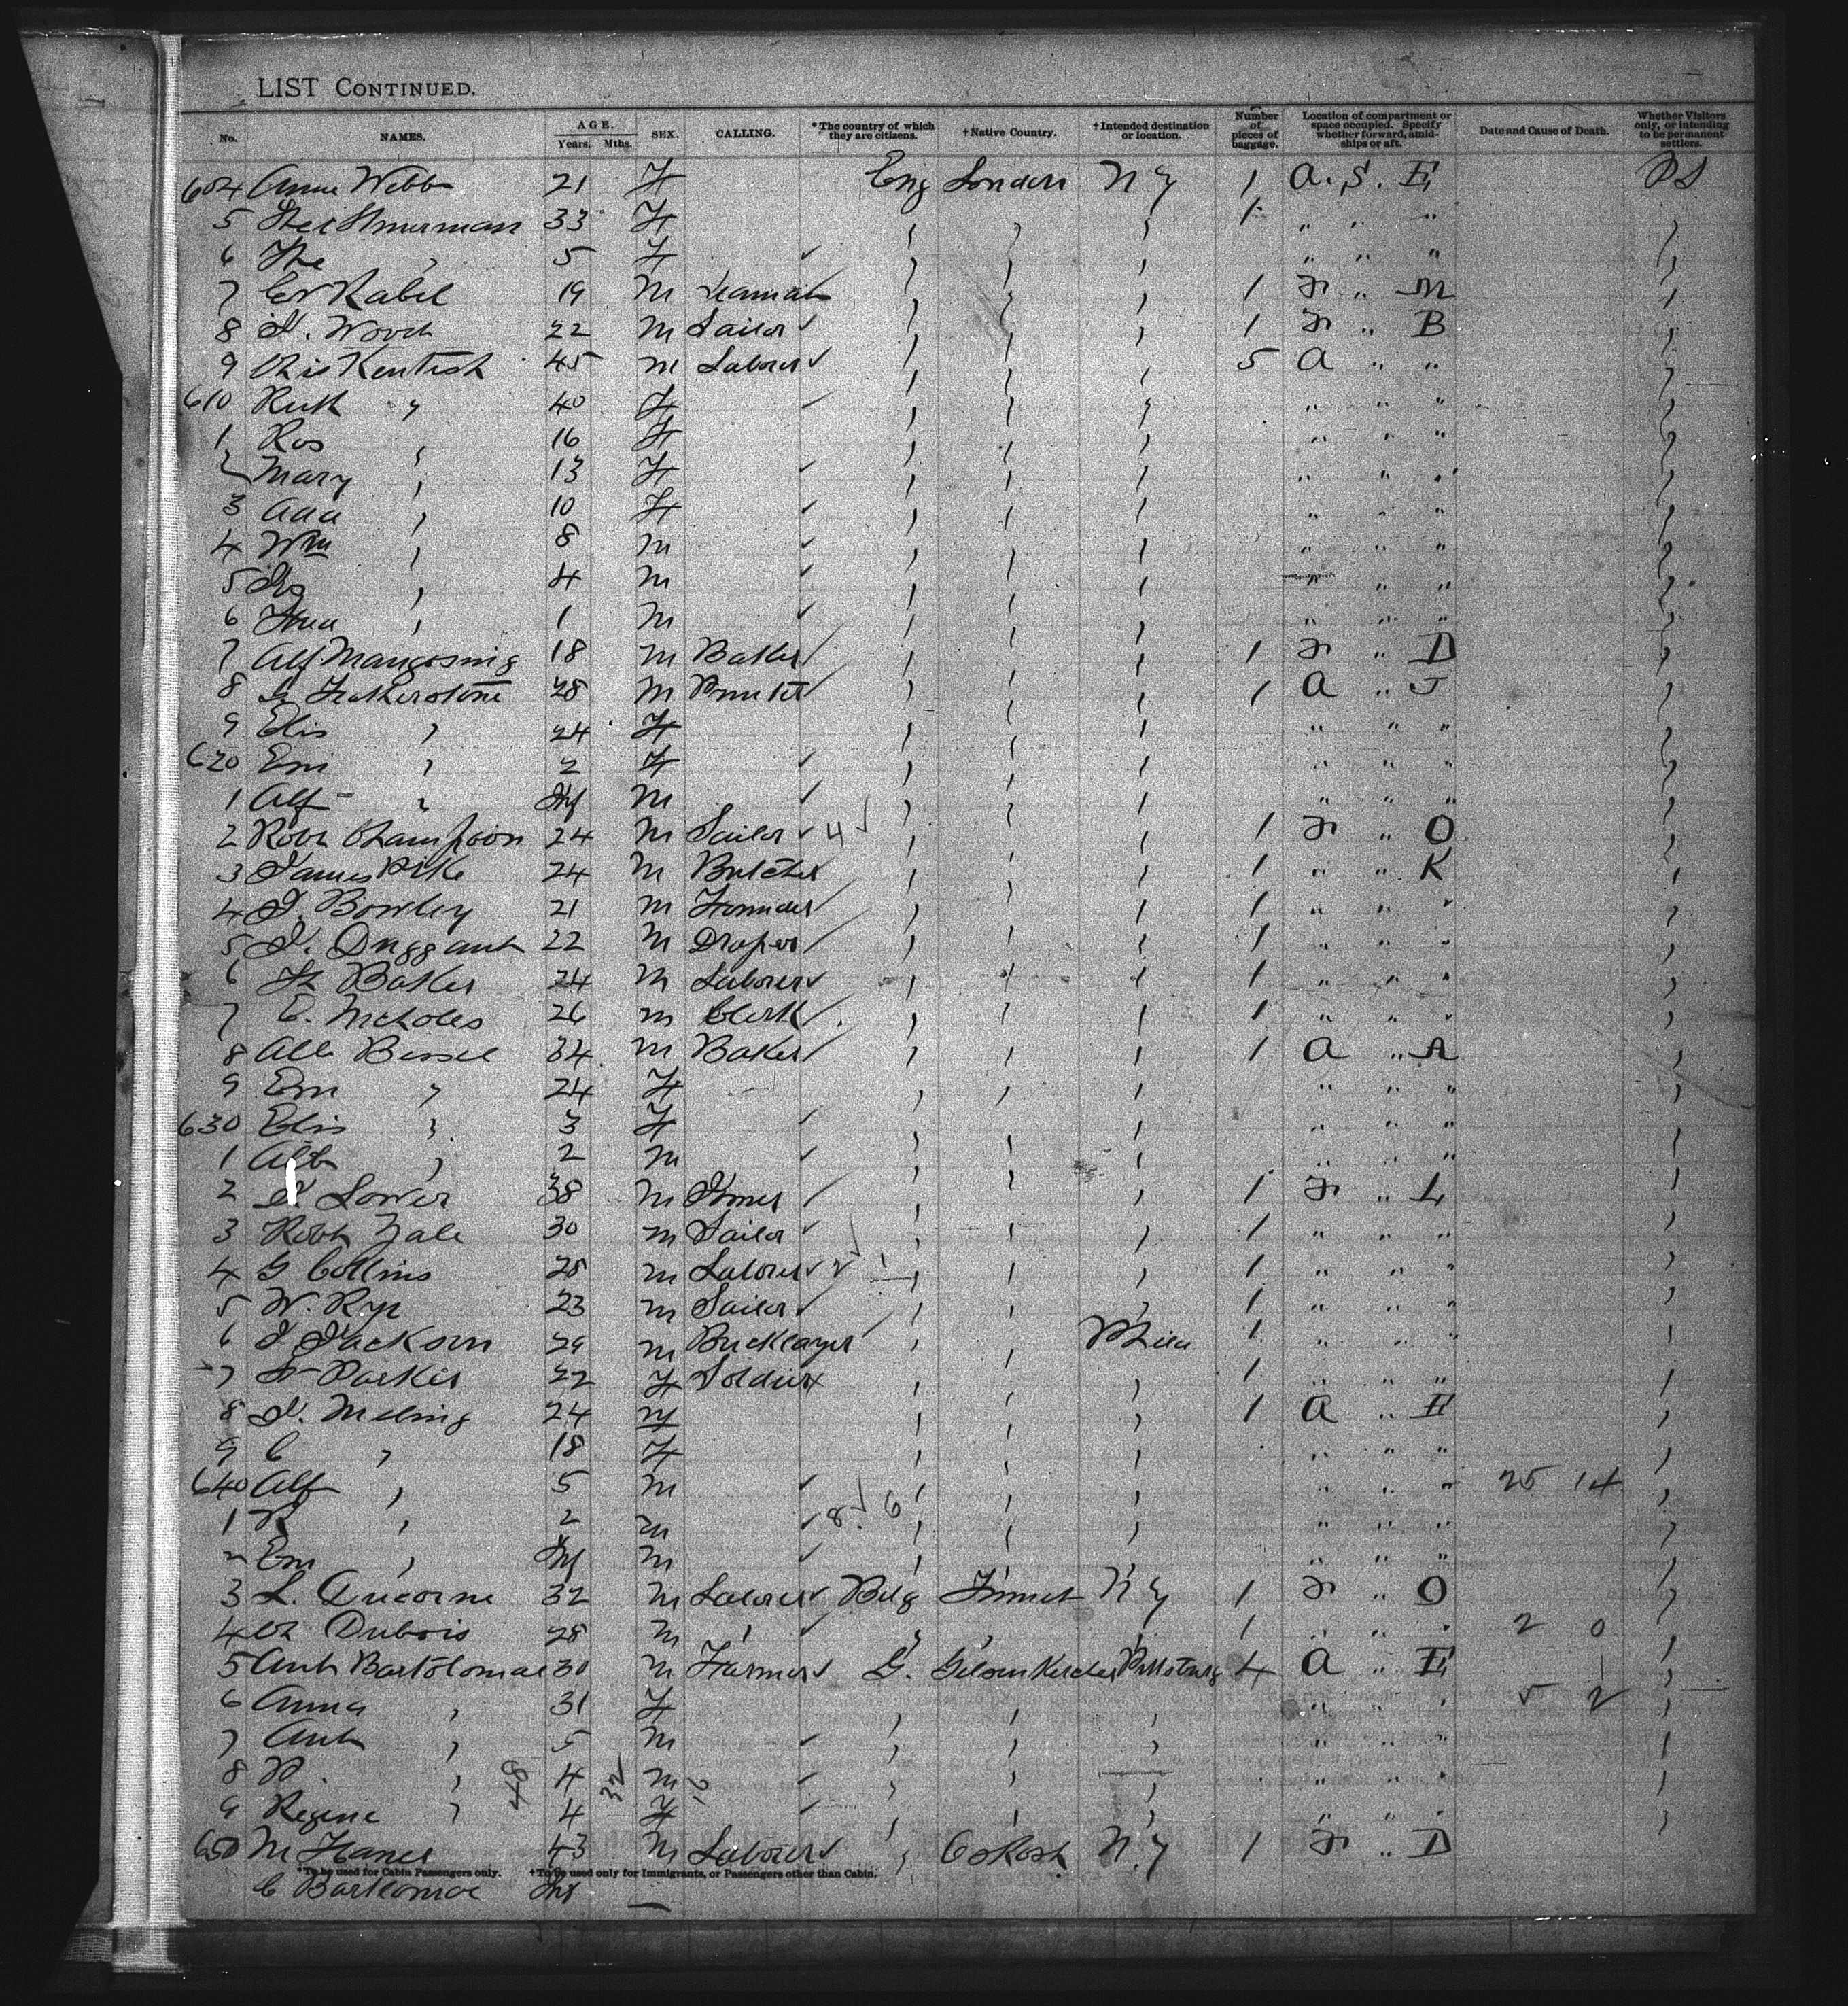 LIST CONTINUED.
No. NAMES. AGE. Years. Mths. SEX. CALLING. *The country of which they are citizens. †Native Country. †Intended destination or location. Number of pieces of baggage. Location of compartment or space occupied. Specify whether forward, amidships or aft. Date and Cause of Death. Whether Visitors only, or intending to be permanent settlers.
604 Annie Webb 21 F Eng London N Y 1 A. S. E PS
5 33 F 1 " " "
6 " 5 F " " "
7 Kabel 19 M 1 F " M
8 22 M Sailor 1 F " B
9 Chis Kentish 45 M Laborer 5 A " "
610 Ruth " 40 F " " "
1 Ros " 16 F " " "
2 Mary " 13 F " " "
3 Ada " 10 F " " "
4 Wm " 8 M " " "
5 " 4 M " " "
6 " 1 M " " "
7 Alf 18 M Baker 1 F " D
8 G Featherstone 28 M Printer 1 A " J
9 Elis " 24 F " " "
620 Em " 2 F " " "
1 Alf " Inf M " " "
2 Robt Champion 24 M Sailor 4 1 F " O
3 James Pike 24 M Butcher 1 " " K
4 J. Bowley 21 M 1 " " "
5 J. 22 M Draper 1 " " "
6 H Baker 24 M Laborer 1 " " "
7 E. Nicholes 26 M Clerk 1 " " "
8 Alb Bessel 34 M Baker 1 A " A
9 Em " 24 F " " "
630 Elis " 3 F " " "
1 Alb " 2 M " " "
2 Lower 38 M 1 F " L
3 Robt Yale 30 M Sailor 1 " " "
4 G Collins 28 M Laborer 1 " " "
5 W. Rye 23 M Sailor 1 " " "
6 J Jackson 29 M Bricklayer Phila 1 " " "
7 Parker 22 F Soldier 1 " " "
8 J. Meling 24 M 1 A " E
9 C " 18 F " " "
640 Alf " 5 M " " " 25 14
1 R " 2 M 8 6 " " "
2 Em " Inf M " " "
3 L. 32 M Laborer Belg N Y 1 F " O
4 Dubois 28 M " 1 " " " 2 0
5 Ant Bartolomae 30 M Farmer G. Gelsenkirchen Pittsburg 4 A " E
6 Anna " 31 F " " " 5 2
7 Ant " 5 M " " "
8 P. " 48 4 32 M 16 " " "
9 Regine " 4 F " " "
650 M Hanes 43 M Laborer " N.Y 1 F " D
*To be used for Cabin Passengers only. †To be used only for Immigrants, or Passengers other than Cabin.
C Bartlomae Inf —